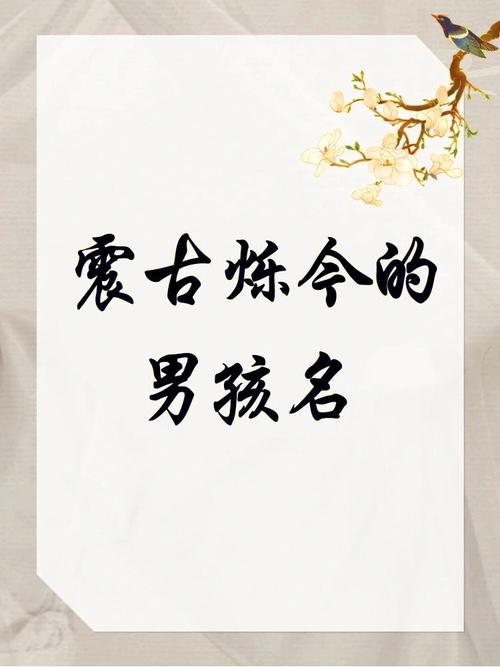 震古烁今的
男孩名